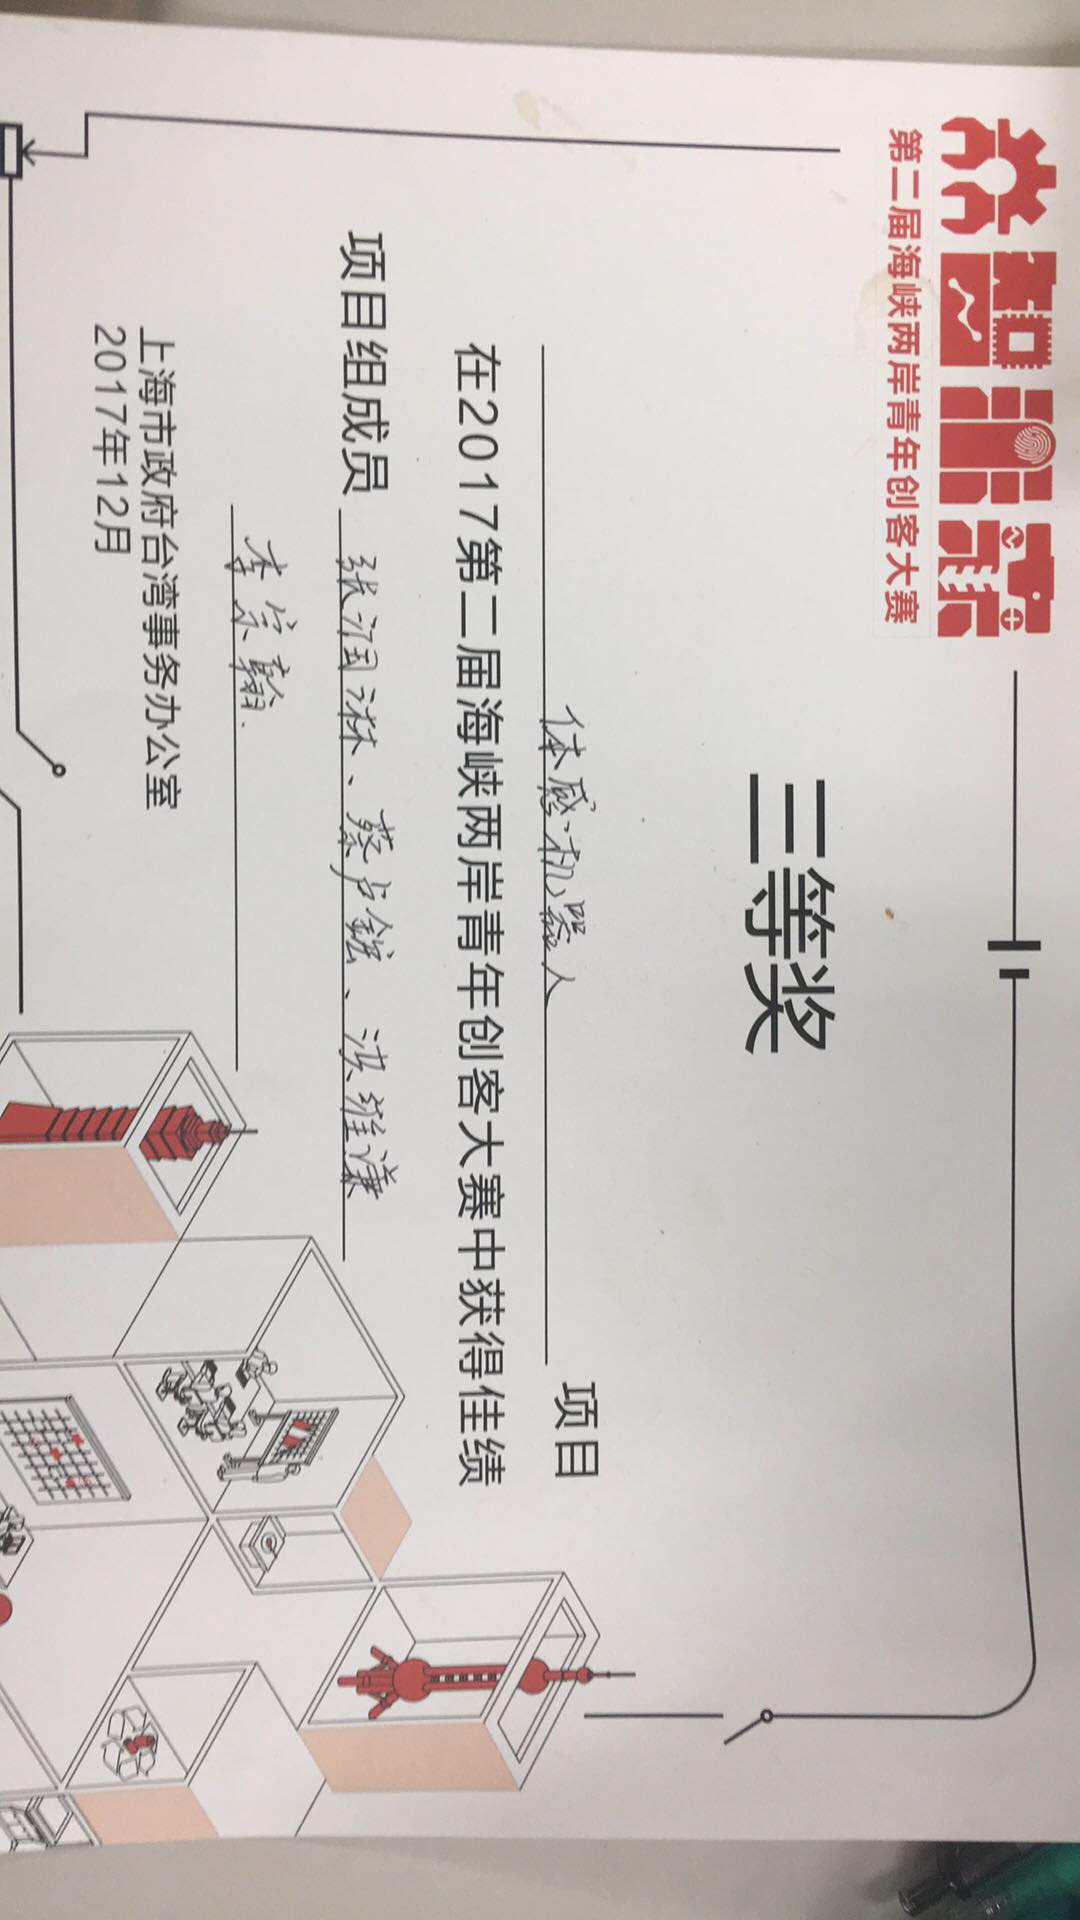 众智汇家
第二届海峡两岸青年创客大赛
三等奖
体感机器人 项目
在2017第二届海峡两岸青年创客大赛中获得佳绩
项目组成员 张润淋、蔡卢鋐、洪維谦
李宗翰.
上海市政府台湾事务办公室
2017年12月